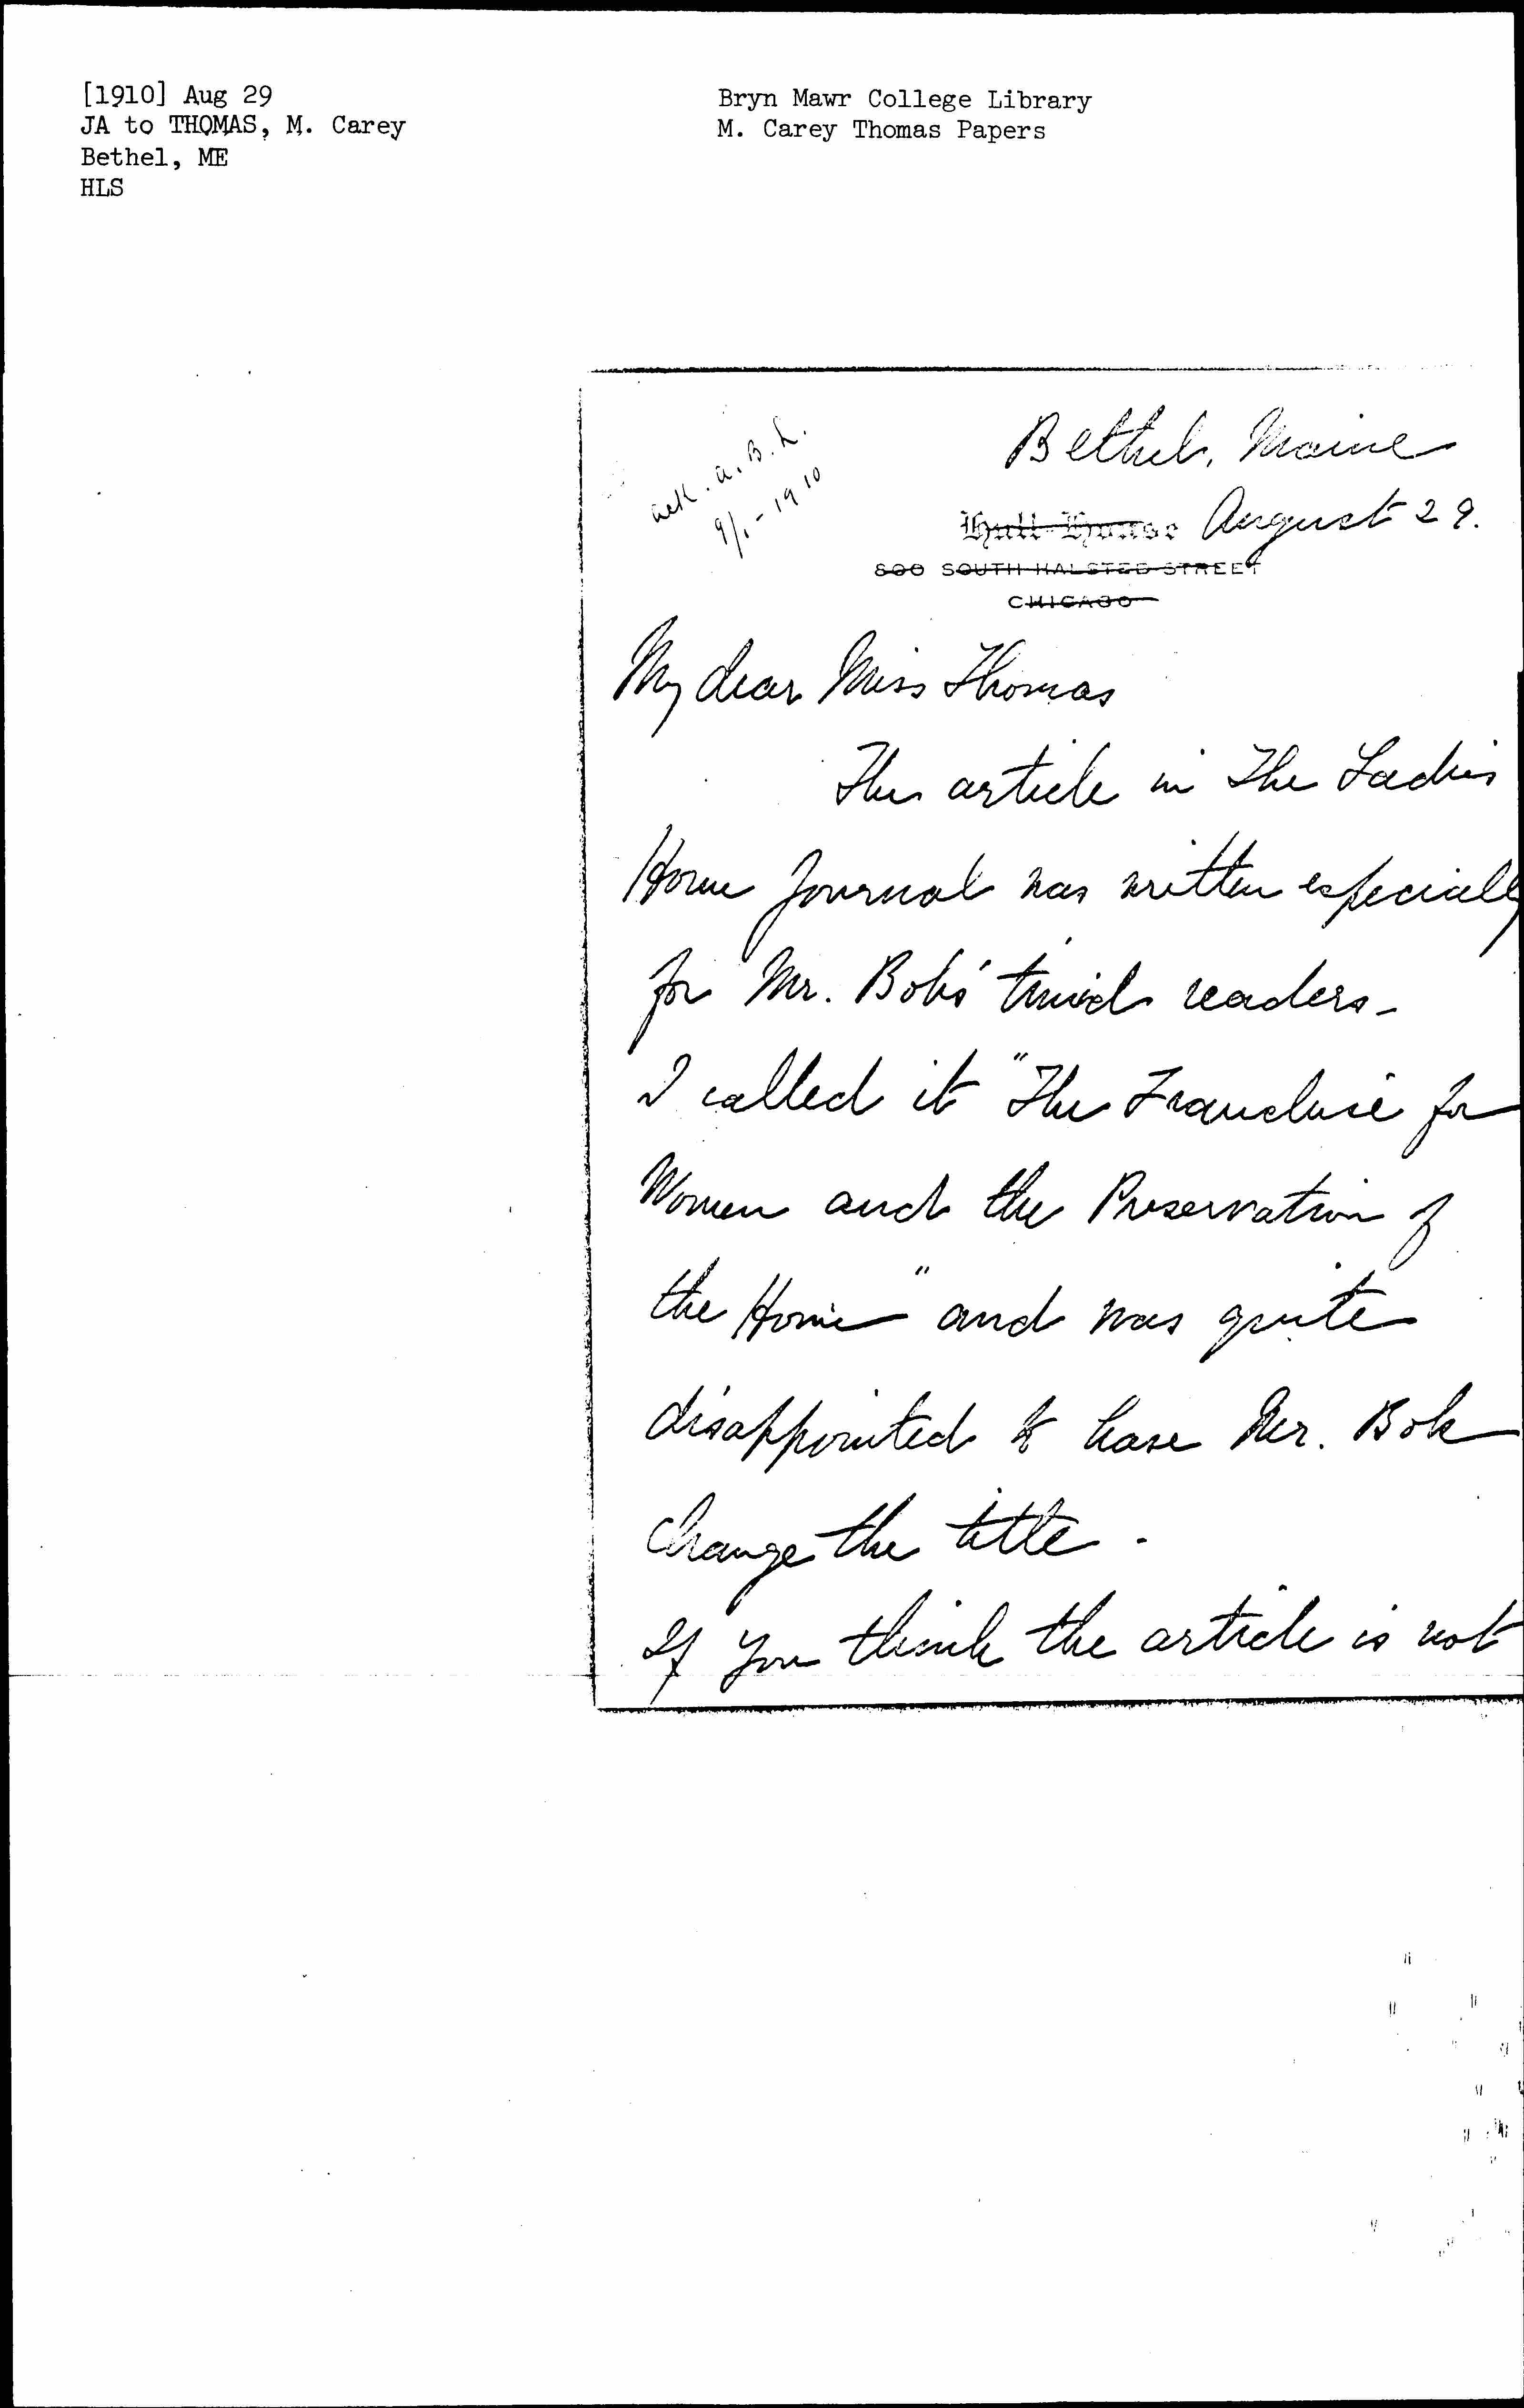 [1910] Aug 29
JA to THOMAS, M. Carey
Bethel, ME
HLS
Bryn Mawr College Library
M. Carey Thomas Papers
ack. a. B. L.
9/1-1910
Bethel, Maine
Hull-House August 29.
800 SOUTH HALSTED STREET
CHICAGO
My dear Miss Thomas
The article in The Ladies
Home Journal was written especially
for Mr. Bok's timid readers -
I called it "The Franchise for
Women and the Preservation of
the Home" and was quite
disappointed to have Mr. Bok
change the title.
If you think the article is not